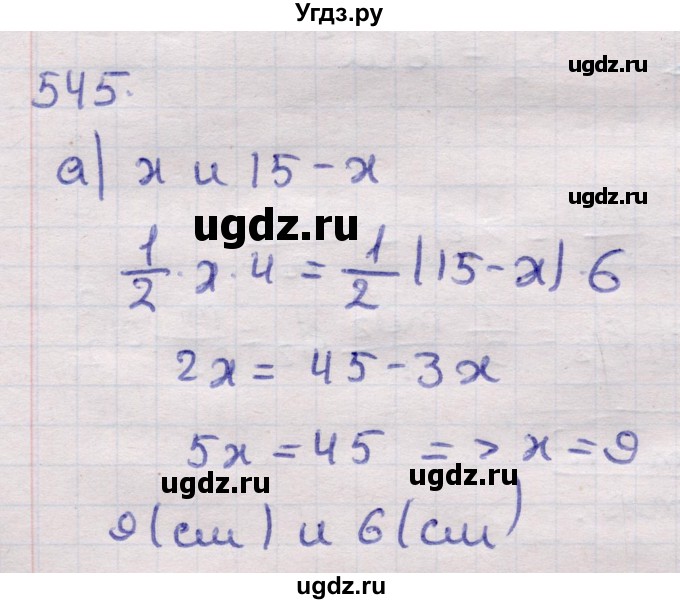 Угдз.ру
ugdz.ru
545.
ugdz.ru
а) x и 15 - x
ugdz.ru
1/2 · x · 4 = 1/2 (15 - x) · 6
2x = 45 - 3x
5x = 45 => x = 9
ugdz.ru ugdz.ru
9 (см) и 6 (см)
ugdz.ru